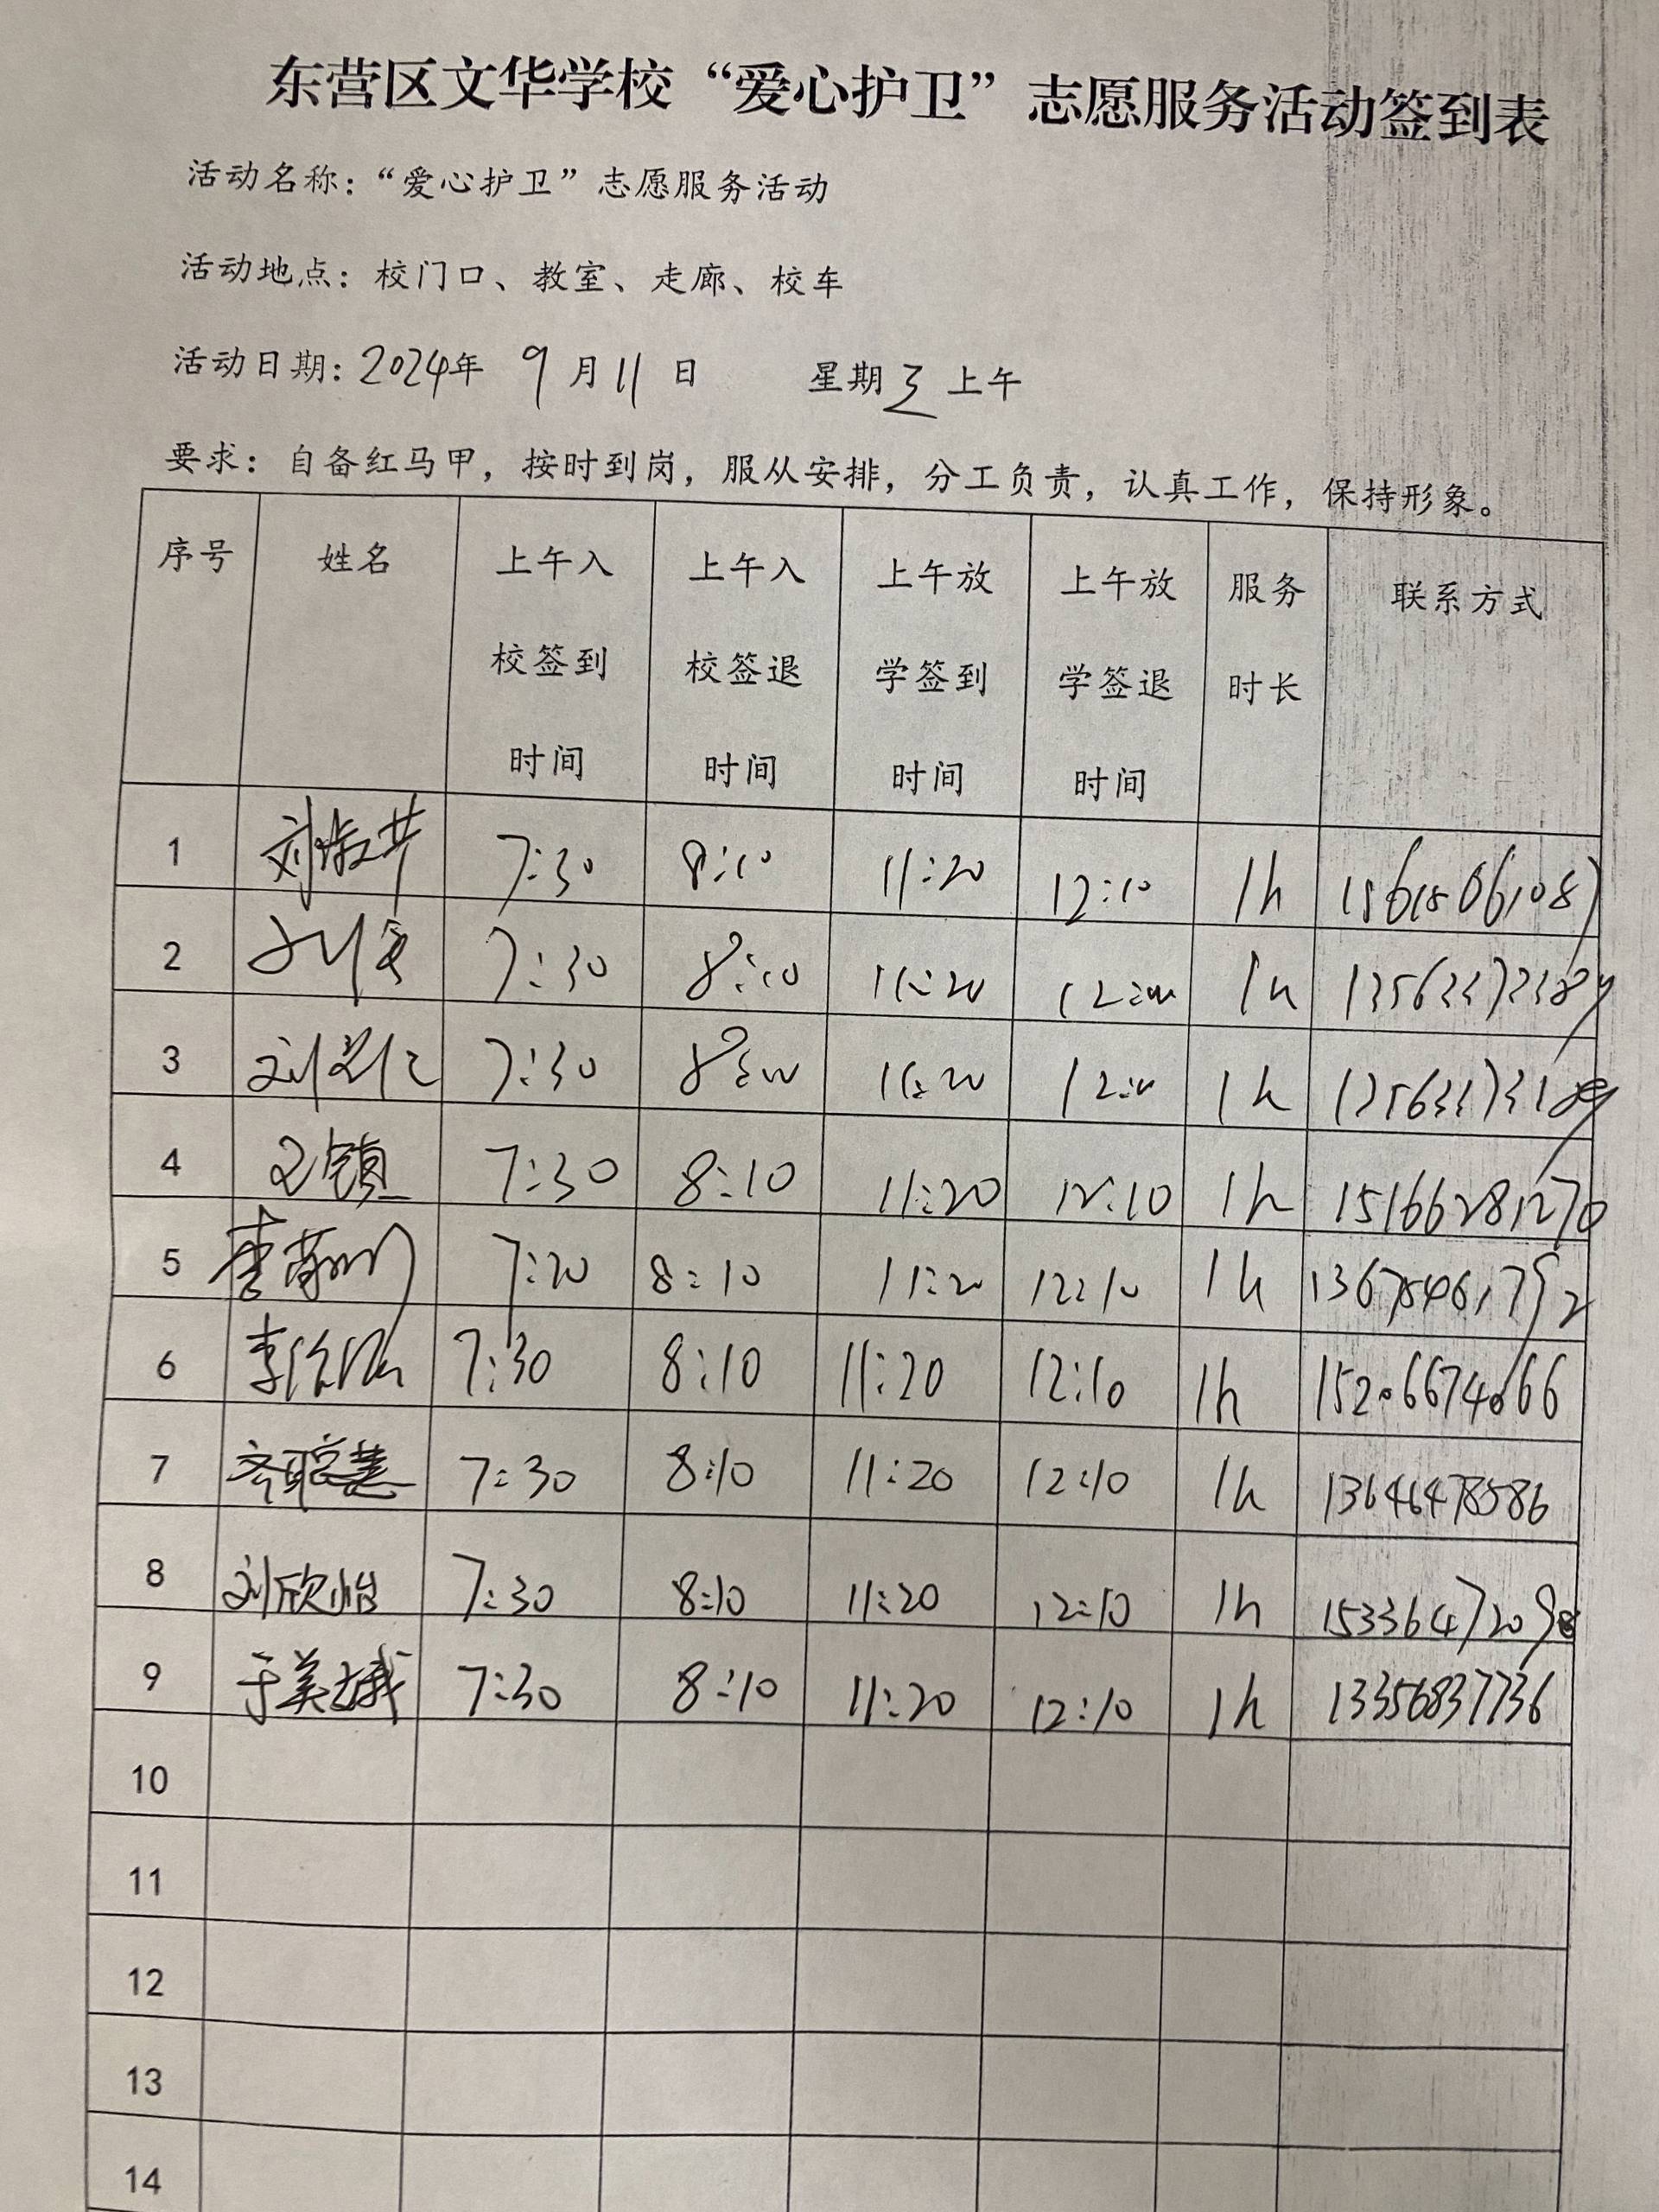 东营区文华学校“爱心护卫”志愿服务活动签到表
活动名称：“爱心护卫”志愿服务活动
活动地点：校门口、教室、走廊、校车
活动日期：2024年 9月11日 星期三 上午
要求：自备红马甲，按时到岗，服从安排，分工负责，认真工作，保持形象。
序号 姓名 上午入校签到时间 上午入校签退时间 上午放学签到时间 上午放学签退时间 服务时长 联系方式
1 7:30 8:10 11:20 12:10 1h
2 7:30 8:10 11:20 1h
3 7:30 11:20 1h
4 7:30 8:10 11:20 12:10 1h 15166281270
5 7:20 8:10 11:20 12:10 1h
6 7:30 8:10 11:20 12:10 1h 15206674066
7 齐聪慧 7:30 8:10 11:20 12:10 1h 13646478586
8 刘欣怡 7:30 8:10 11:20 12:10 1h
9 于美娥 7:30 8:10 11:20 12:10 1h 13356837736
10
11
12
13
14